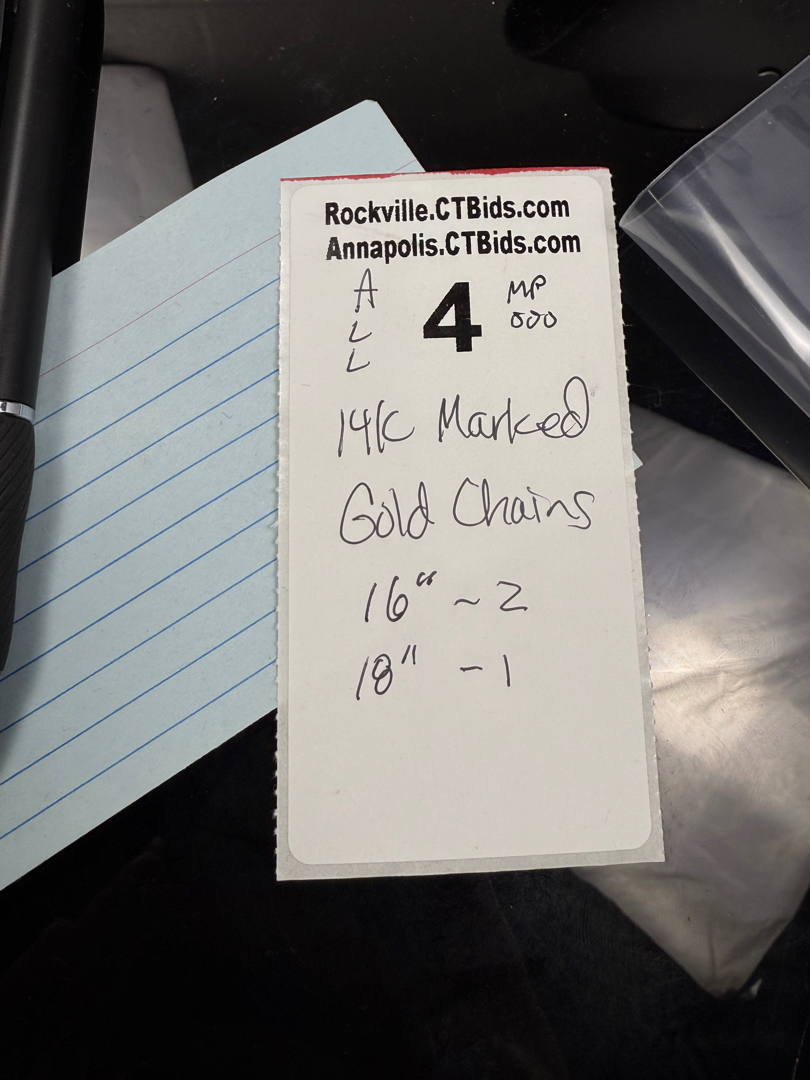 Rockville.CTBids.com
Annapolis.CTBids.com
A
L
L
4
MP
000
14K Marked
Gold Chains
16" ~ 2
18" - 1